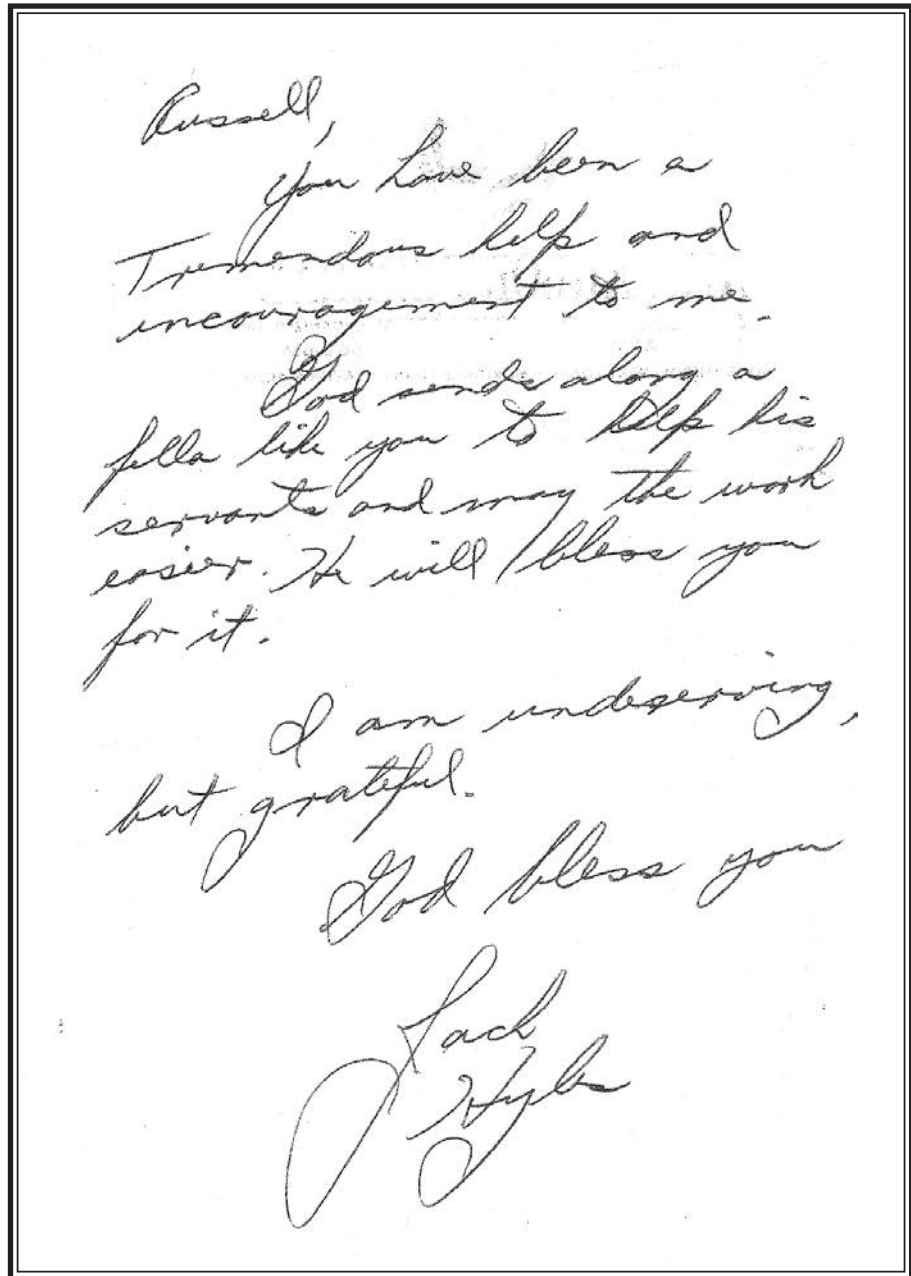 Russell,
You have been a
Tremendous help and
encouragement to me.
God sends along a
fella like you to help his
servants and may the work
easier. He will bless you
for it.
I am undeserving,
but grateful.
God bless you
Jack
Hyles